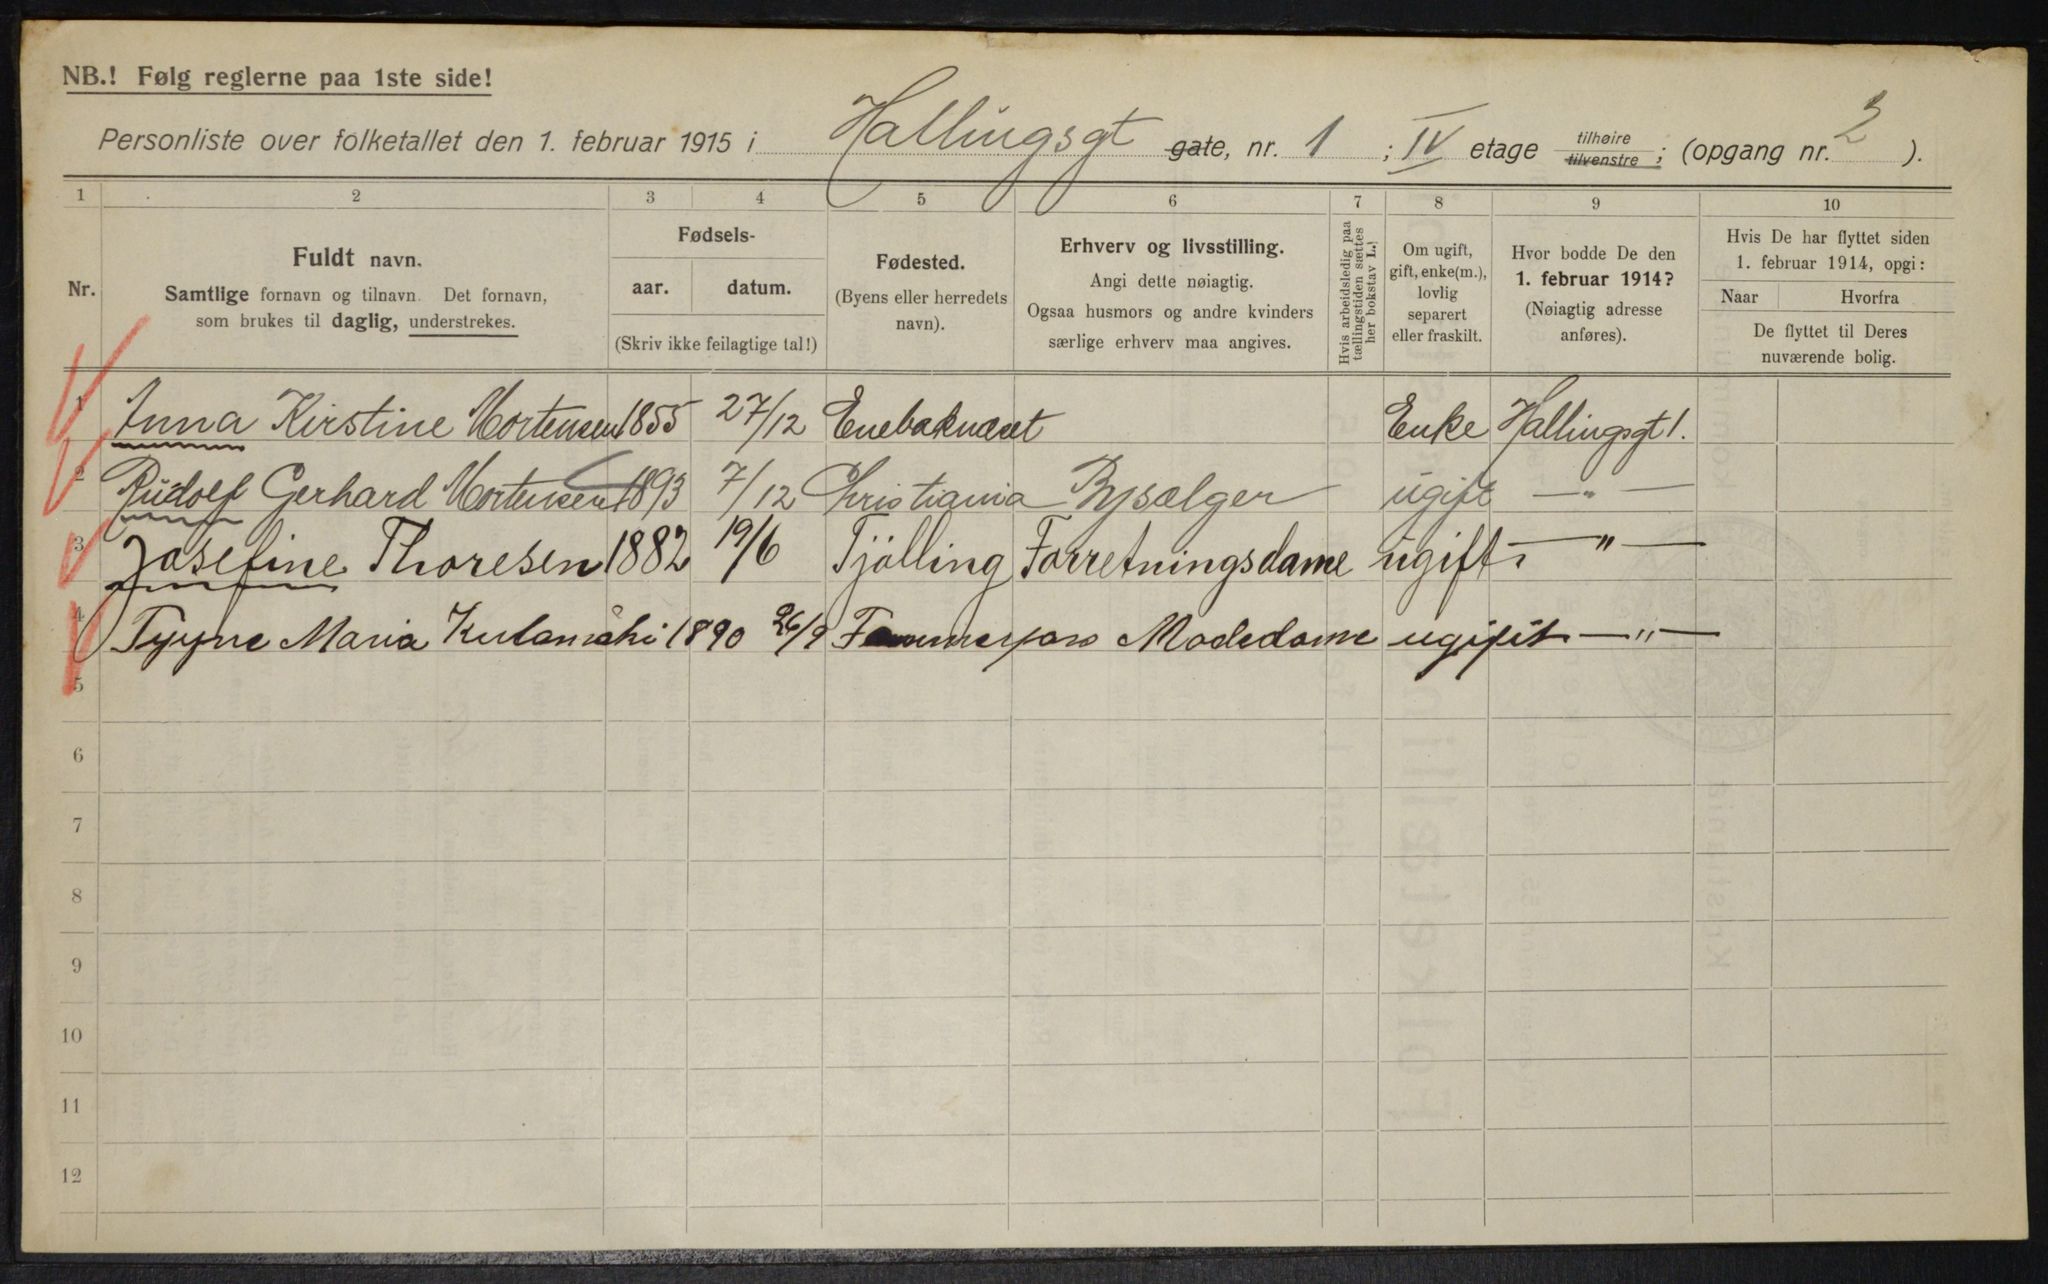 NB.! Følg reglerne paa 1ste side!
Personliste over folketallet den 1. februar 1915 i Hallingsgt gate, nr. 1 ; IV etage tilhøire tilvenstre ; (opgang nr. 2 ).
1 2 3 4 5 6 7 8 9 10
Nr.
Fuldt navn.
Samtlige fornavn og tilnavn. Det fornavn,
som brukes til daglig, understrekes.
Fødsels-
aar. datum.
(Skriv ikke feilagtige tal!)
Fødested.
(Byens eller herredets
navn).
Erhverv og livsstilling.
Angi dette nøiagtig.
Ogsaa husmors og andre kvinders
særlige erhverv maa angives.
Hvis arbeidsledig paa
tællingstiden sættes
her bokstav L.!
Om ugift,
gift, enke(m.),
lovlig
separert
eller fraskilt.
Hvor bodde De den
1. februar 1914?
(Nøiagtig adresse
anføres).
Hvis De har flyttet siden
1. februar 1914, opgi:
Naar Hvorfra
De flyttet til Deres
nuværende bolig.
1 Anna Kirstine Mortensen 1855 27/12 Enebaknæset Enke Hallingsgt 1.
2 Rudolf Gerhard Mortensen 1893 7/12 Christiania Bysælger ugift — „ —
3 Josefine Thoresen 1882 19/6 Tjølling Forretningsdame ugift — " —
4 Tyyne Maria 1890 26/9 Modedame ugift — „ —
5
6
7
8
9
10
11
12